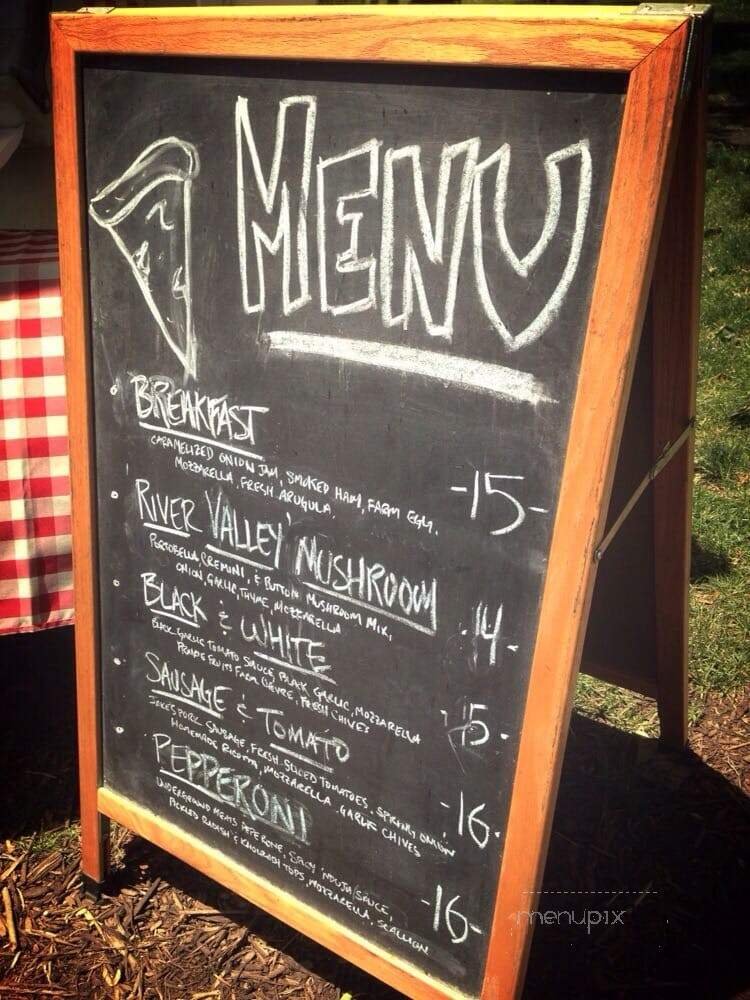 MENU
BREAKFAST
CARAMELIZED ONION JAM, SMOKED HAM, FARM EGG,
MOZZARELLA, FRESH ARUGULA.
-15-
RIVER VALLEY MUSHROOM
PORTOBELLA, CREMINI, & BUTTON MUSHROOM MIX,
ONION, GARLIC, THYME, MOZZARELLA
-14-
BLACK & WHITE
BLACK GARLIC TOMATO SAUCE, BLACK GARLIC, MOZZARELLA
PRAIRIE FRUITS FARM CHEVRE, FRESH CHIVES
-15-
SAUSAGE & TOMATO
JAKES PORK SAUSAGE, FRESH SLICED TOMATOES, SPRING ONION
HOMEMADE RICOTTA, MOZZARELLA, GARLIC CHIVES
-16-
PEPPERONI
UNDERGROUND MEATS PEPERONE, SPICY 'NDUJA SAUCE,
PICKLED RADISH & KOHLRABI TOPS, MOZZARELLA, SCALLION
-16-
menupix